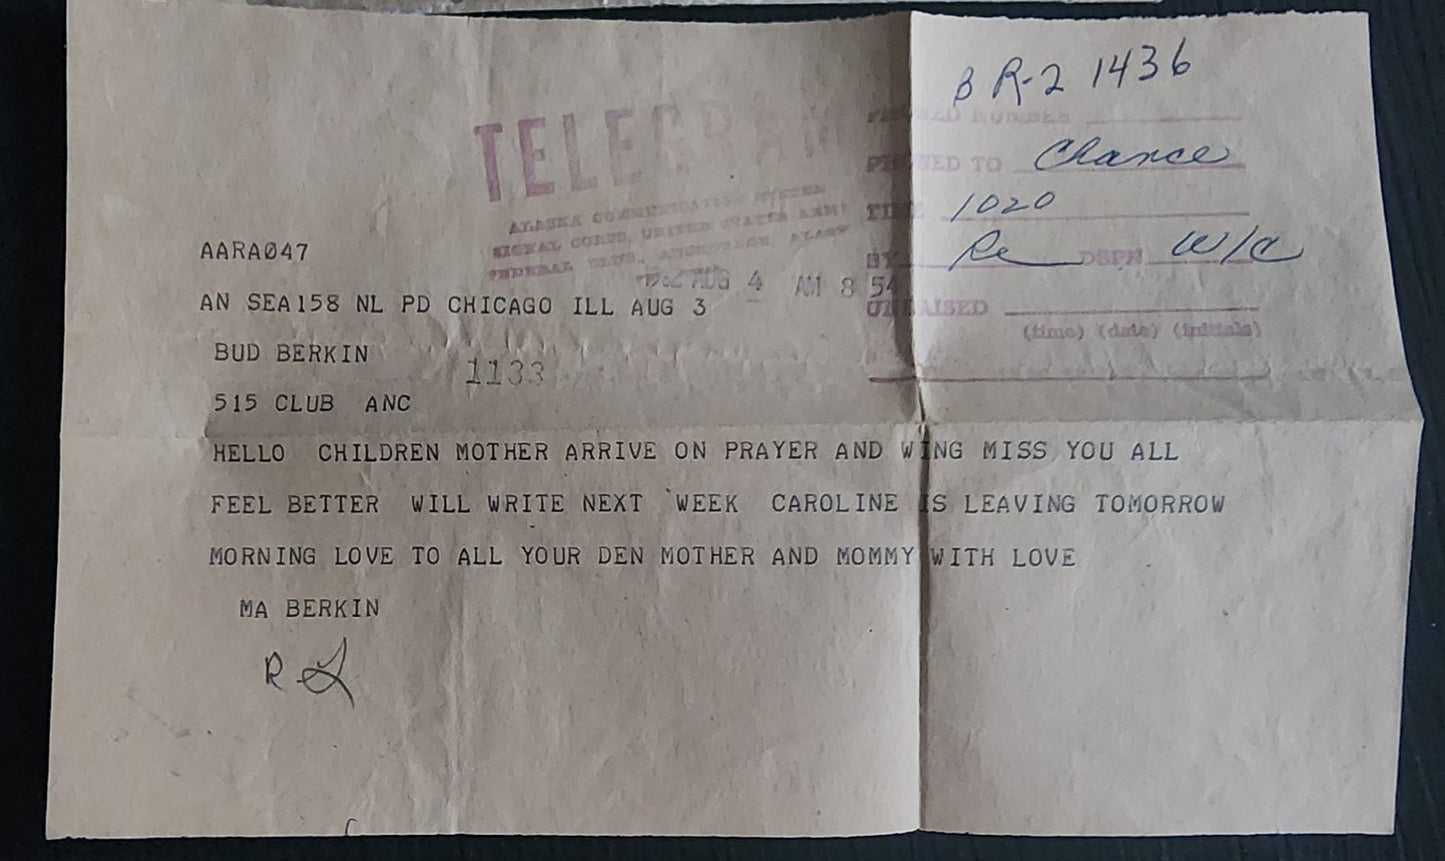 B R-2 1436
TELEGRAM
PHONED NUMBER
PHONED TO Chance
ALASKA COMMUNICATION SYSTEM
SIGNAL CORPS, UNITED STATES ARMY
TIME 1020
FEDERAL BLDG., ANCHORAGE ALASKA
AARAØ47
BY Re DSPN W/C
AUG 4 AM 8 54
AN SEA158 NL PD CHICAGO ILL AUG 3
UNRAISED
(time) (date) (initials)
BUD BERKIN
1133
515 CLUB ANC
HELLO CHILDREN MOTHER ARRIVE ON PRAYER AND WING MISS YOU ALL
FEEL BETTER WILL WRITE NEXT WEEK CAROLINE IS LEAVING TOMORROW
MORNING LOVE TO ALL YOUR DEN MOTHER AND MOMMY WITH LOVE
MA BERKIN
R